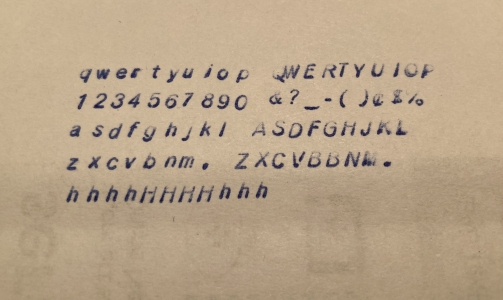 qwertyuiop QWERTYUIOP
1234567890 &?_-()¢$%
asdfghjkl ASDFGHJKL
zxcvbnm. ZXCVBBNM.
hhhhHHHHhhh